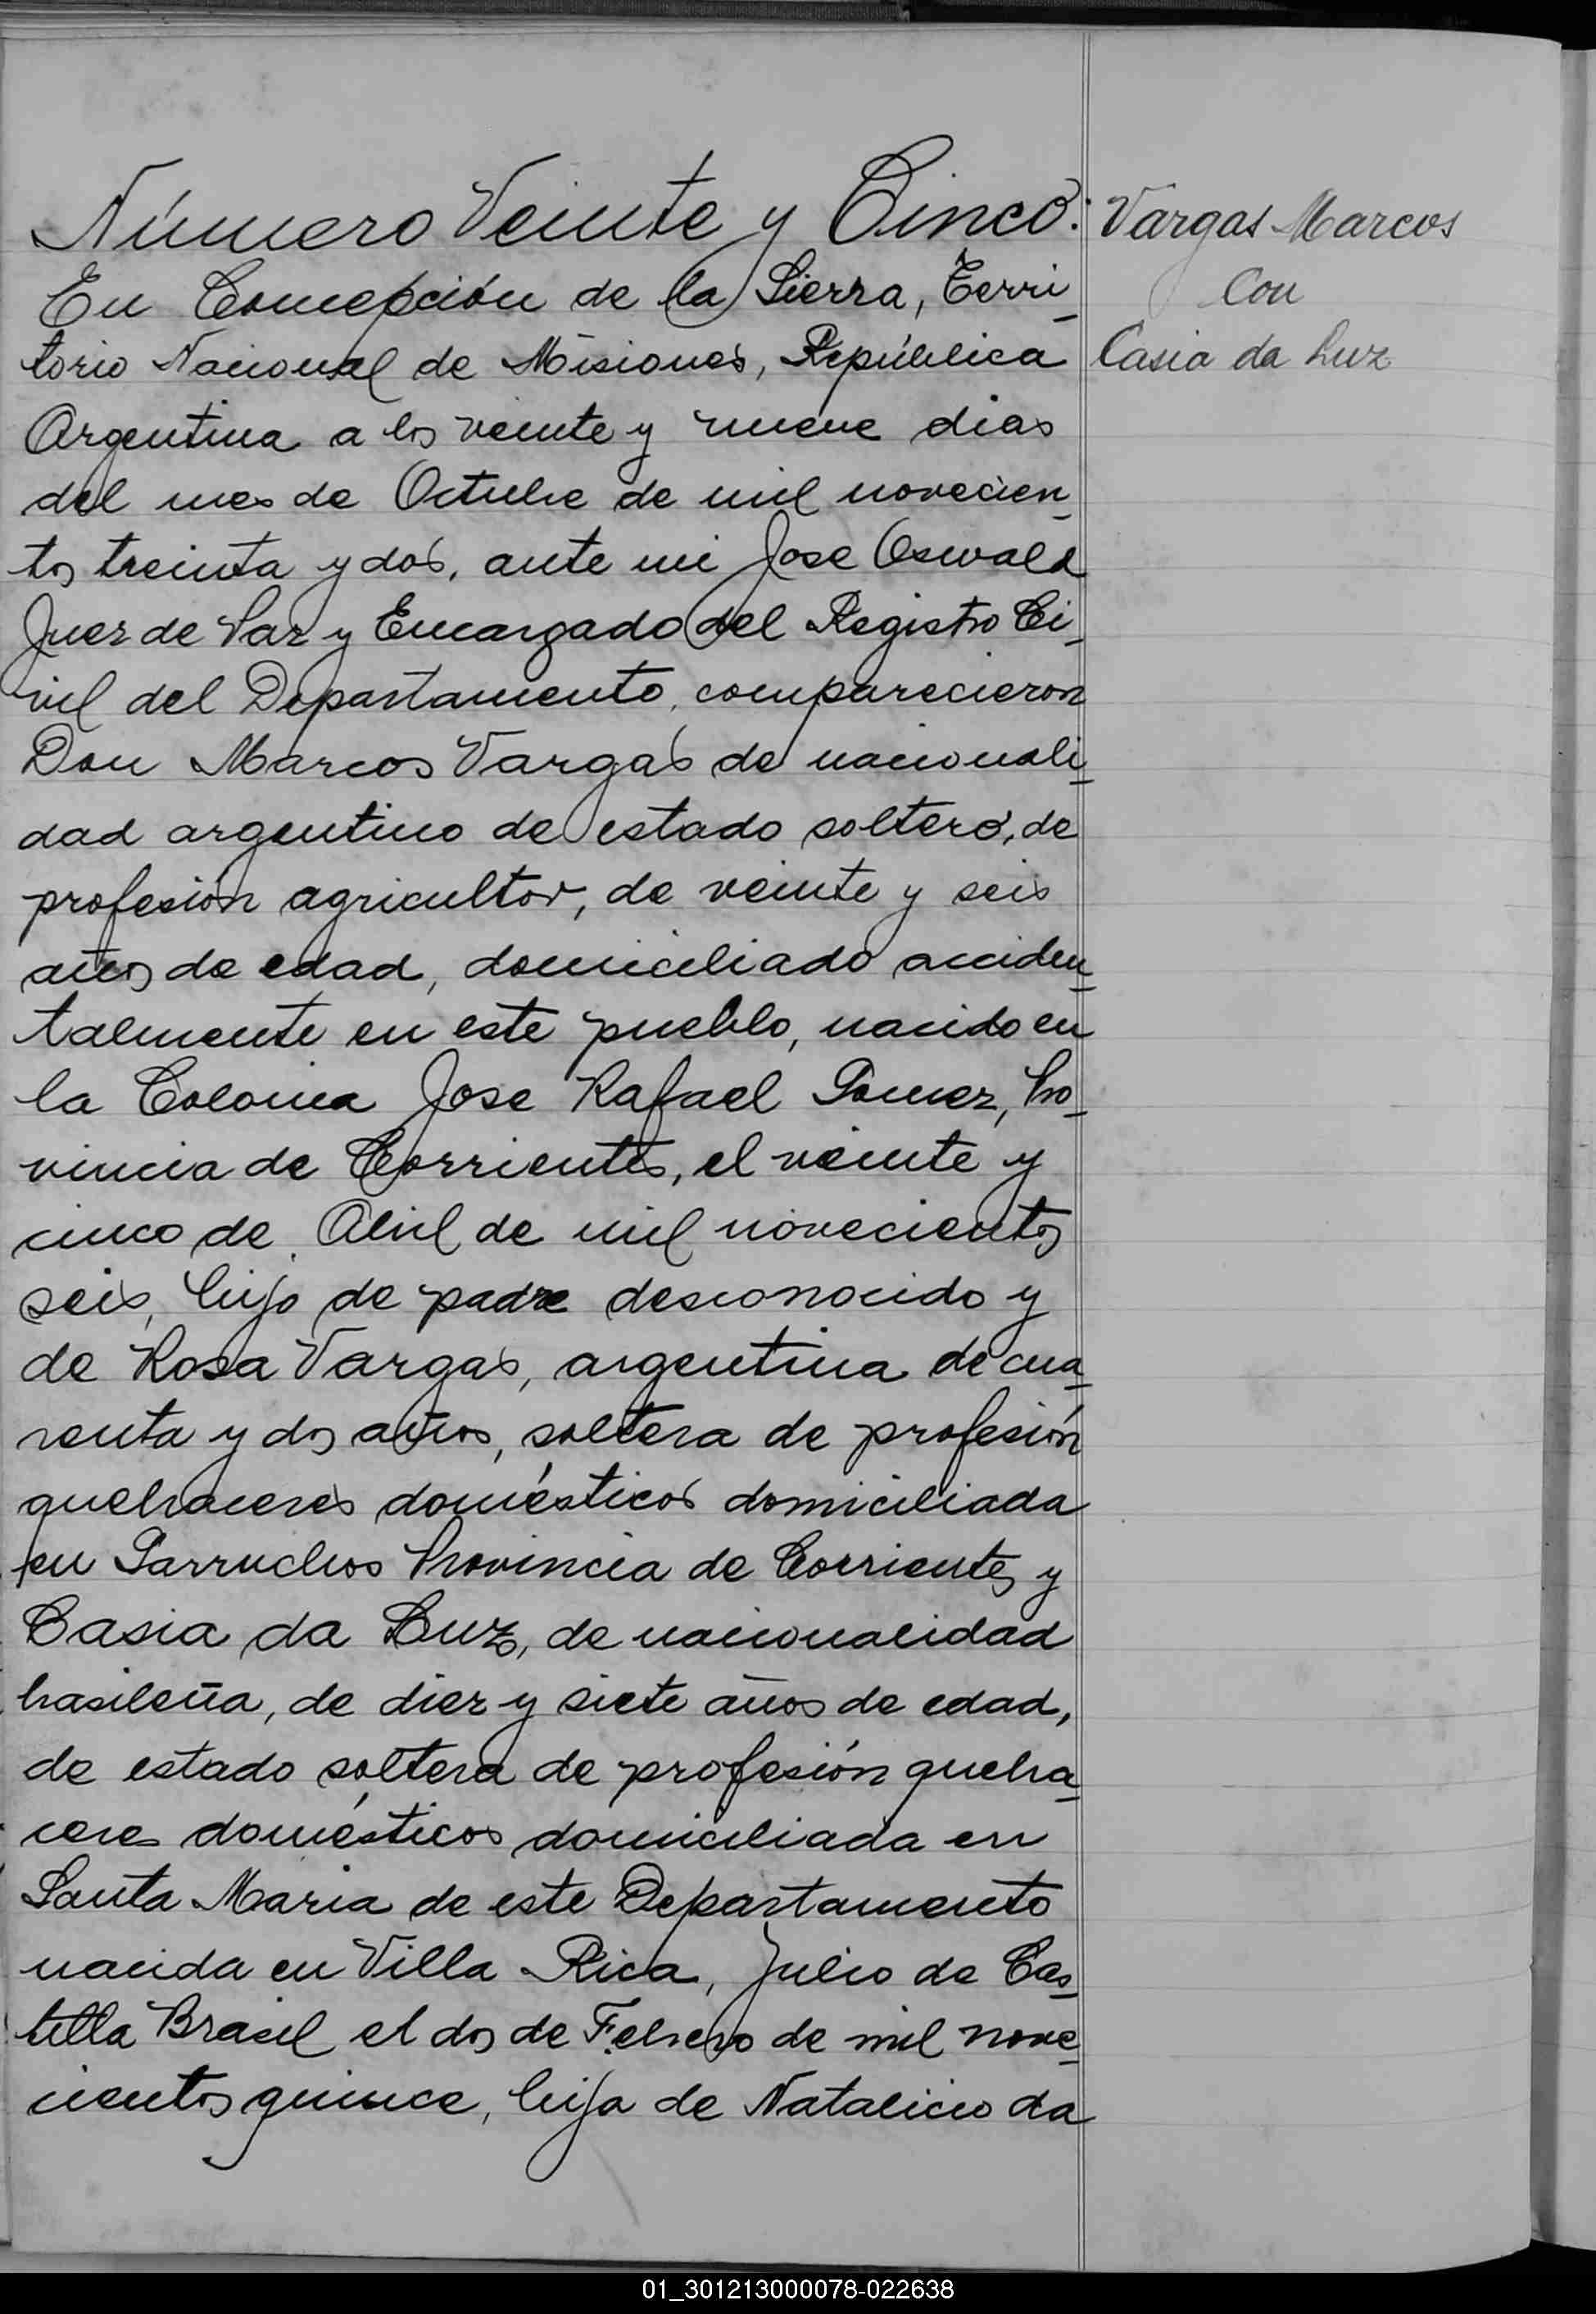 Número Veinte y Cinco:
En Concepción de la Sierra, Terri-
torio Nacional de Misiones, República
Argentina a los veinte y nueve dias
del mes de Octubre de mil novecien-
tos treinta y dos, ante mi Jose Oswald
Juez de Paz y Encargado del Registro Ci-
vil del Departamento, comparecieron
Don Marcos Vargas de nacionali-
dad argentino de estado soltero, de
profesión agricultor, de veinte y seis
años de edad, domiciliado acciden-
talmente en este pueblo, nacido en
la Colonia Jose Rafael Gomez, Pro-
vincia de Corrientes, el veinte y
cinco de Abril de mil novecientos
seis, hijo de padre desconocido y
de Rosa Vargas, argentina de cua-
renta y dos años, soltera de profesión
quehaceres domésticos domiciliada
en Garruchos Provincia de Corrientes y
Casia da Luz, de nacionalidad
brasileña, de diez y siete años de edad,
de estado soltera de profesión queha-
ceres domésticos domiciliada en
Santa Maria de este Departamento
nacida en Villa Rica, Julio de Cas-
tilla Brasil el dos de Febrero de mil nove-
cientos quince, hija de Natalicio da
Vargas Marcos
Con
Casia da Luz
01_301213000078-022638